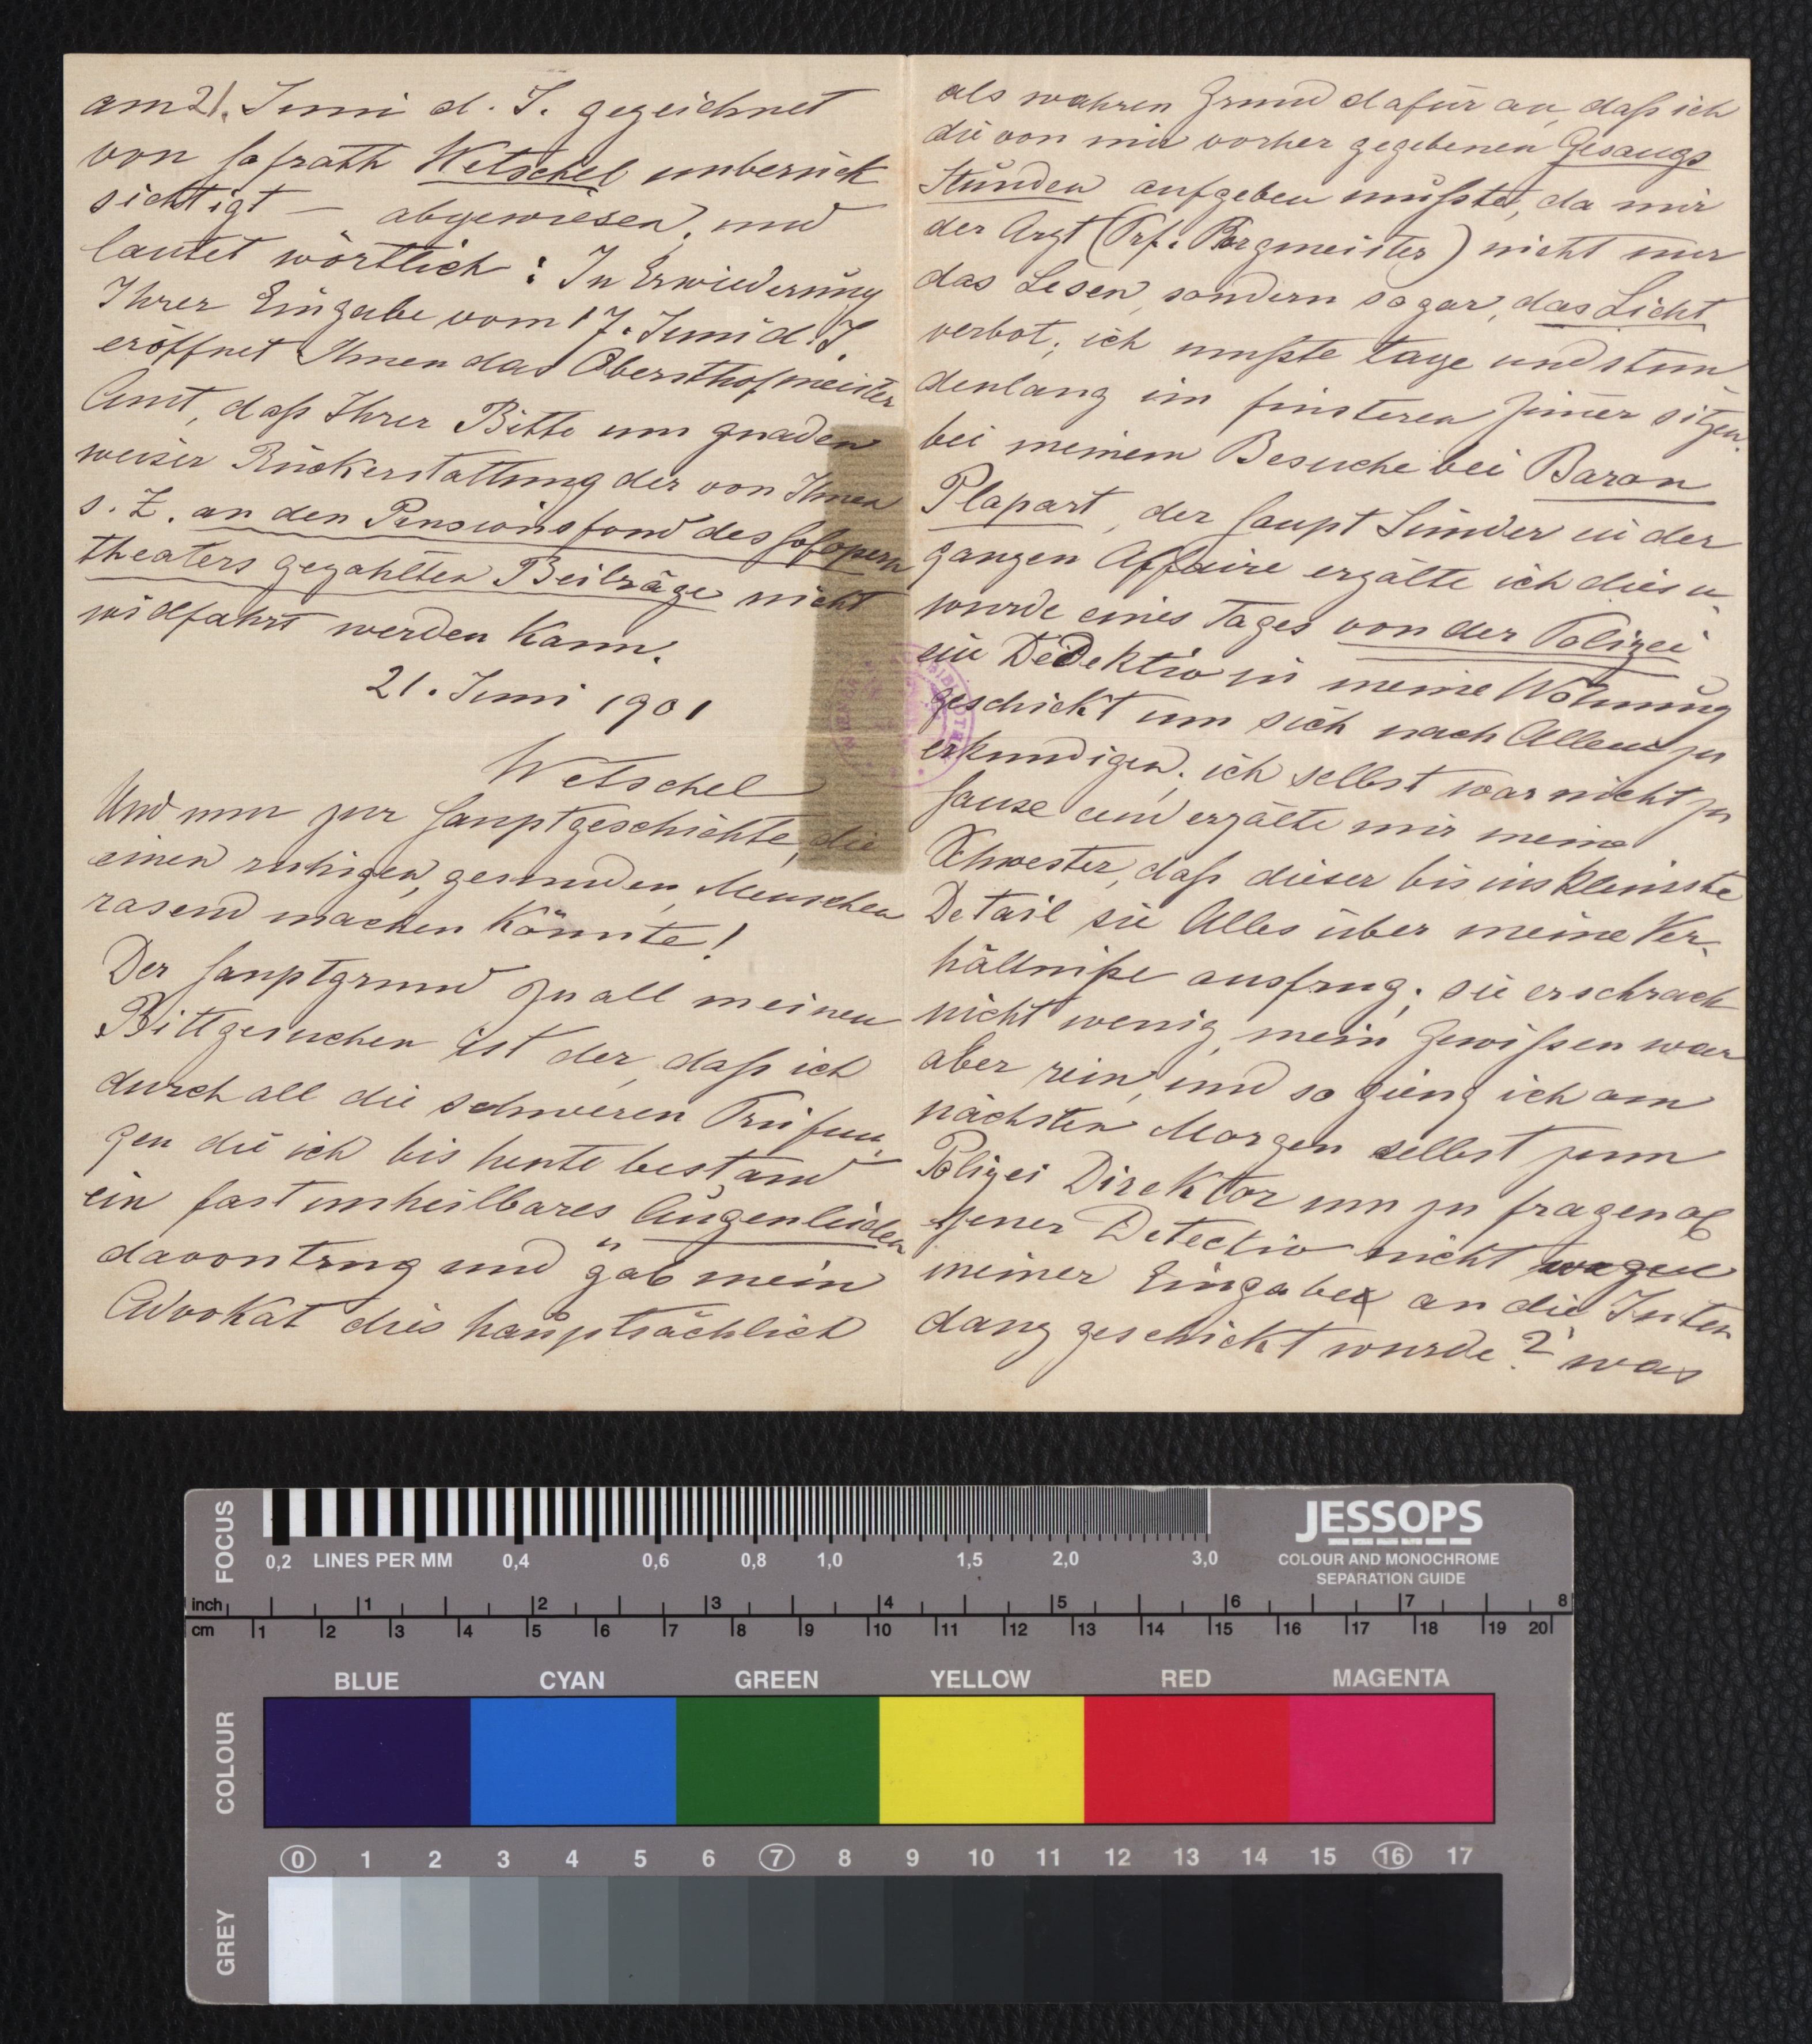 am 21. Juni d. J. gezeichnet
von Hofrath Wetschel unberück
sichtigt — abgewiesen, und
lautet wörtlich: In Erwiederung
Ihrer Eingabe vom 17. Juni d. J.
eröffnet Ihnen das Obersthofmeister
Amt, daß Ihrer Bitte um gnaden
weiser Rückerstattung der von Ihnen
s. Z. an den Pensionsfond des Hofopern
theaters gezahlten Beiträge nicht
willfahrt werden kann.
21. Juni 1901
Wetschel
Und nun zur Hauptgeschichte, die
einen ruhigen, gesunden Menschen
rasend machen könnte!
Der Hauptgrund zu all meinen
Bittgesuchen ist der, daß ich
durch all die schweren Prüfun
gen die ich bis heute bestand
ein fast unheilbares Augenleiden
davontrug und gab mein
Advokat dies hauptsächlich
als wahren Grund dafür an, daß ich
die von mir vorher gegebenen Gesangs
Stunden aufgeben mußte, da mir
der Arzt (Prf. Bergmeister) nicht nur
das Lesen, sondern sogar, das Licht
verbot; ich mußte tage und stun
denlang im finsteren Zimer sitzen.
bei meinem Besuche bei Baron
Plapart, der Haupt Sünder in der
ganzen Affaire erzälte ich dies u.
wurde eines Tages von der Polizei
ein Dedektiv in meine Wohnung
geschickt um sich nach Allem zu
erkundigen; ich selbst war nicht zu
Hause und erzälte mir meine
Schwester, daß dieser bis ins kleinste
Detail sie Alles über meine Ver-
hältniße ausfrug; sie erschrack
nicht wenig, mein Gewißen war
aber rein, und so gieng ich am
nächsten Morgen selbst zum
Polizei Direktor um zu fragen ob
jener Detectiv nicht wegen
meiner Eingabe an die Inten
danz geschickt wurde? was
FOCUS
0,2 LINES PER MM 0,4 0,6 0,8 1,0 1,5 2,0 3,0
JESSOPS
COLOUR AND MONOCHROME
SEPARATION GUIDE
inch 1 2 3 4 5 6 7 8
cm 1 2 3 4 5 6 7 8 9 10 11 12 13 14 15 16 17 18 19 20
BLUE CYAN GREEN YELLOW RED MAGENTA
COLOUR
0 1 2 3 4 5 6 7 8 9 10 11 12 13 14 15 16 17
GREY